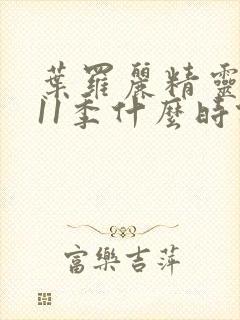 葉羅麗精靈
11季什麼時
富樂吉萍